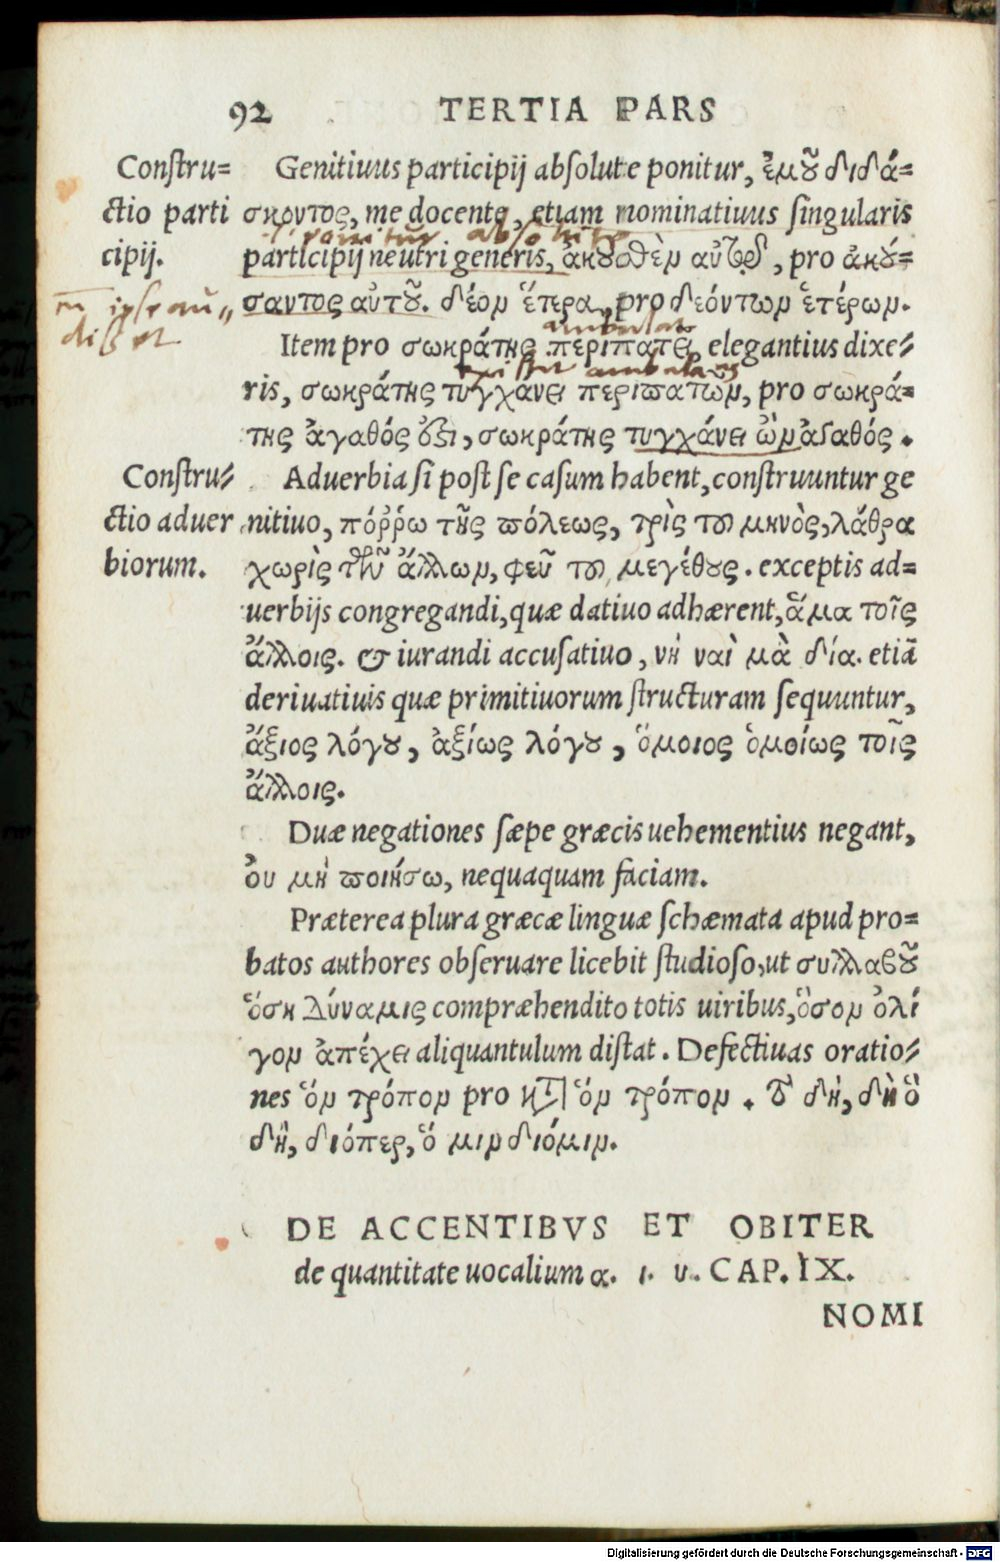 92 TERTIA PARS
Constru=
ctio parti
cipij.
Genitiuus participij absolute ponitur, ἐμοῦ διδά=
σκοντος, me docente, etiam nominatiuus singularis
ponitur absolute
participij neutri generis, ἀκουσθὲν αὐτοῦ, pro ἀκού=
σαντος αὐτοῦ. δέον ἕτερα, pro δεόντων ἑτέρων.
ipse au„
disset
ambulat
Item pro σωκράτης περιπατεῖ, elegantius dixe/
existit ambulans
ris, σωκράτης τυγχάνει περιπατῶν, pro σωκρά=
της ἀγαθός ἐστι, σωκράτης τυγχάνει ὢν ἀγαθός.
Constru/
ctio aduer
biorum.
Aduerbia si post se casum habent, construuntur ge
nitiuo, πόῤῥω τῆς πόλεως, τρὶς του μηνὸς, λάθρα
χωρὶς τῶν ἄλλων, φεῦ του μεγέθους. exceptis ad=
uerbijs congregandi, quæ datiuo adhærent, ἅμα τοῖς
ἄλλοις. & iurandi accusatiuo, νὴ ναὶ μὰ δία. etiā
deriuatiuis quæ primitiuorum structuram sequuntur,
ἄξιος λόγου, ἀξίως λόγου, ὅμοιος ὁμοίως τοῖς
ἄλλοις.
Duæ negationes sæpe græcis uehementius negant,
ὀυ μὴ ποιήσω, nequaquam faciam.
Præterea plura græcæ linguæ schæmata apud pro=
batos authores obseruare licebit studioso, ut συλλαβοῦ
ὅση δύναμις compræhendito totis uiribus, ὅσον ὀλί
γον ἀπέχει aliquantulum distat. Defectiuas oratio/
nes ὅν τρόπον pro κατ ὅν τρόπον. δὴ, δὴ ὃ
δὴ, διόπερ, ὅ μιν διόμιν.
DE ACCENTIBVS ET OBITER
de quantitate uocalium α. ι. υ. CAP. IX.
NOMI
Digitalisierung gefördert durch die Deutsche Forschungsgemeinschaft - DFG